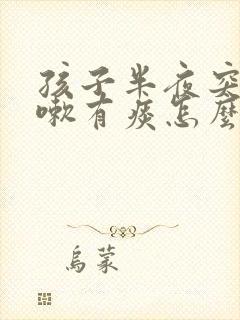 孩子半夜突
嗽有痰怎麼
烏蒙